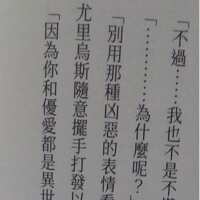 「不過……我也不是不
「…………為什麼呢？」
「別用那種凶惡的表情看
尤里烏斯隨意擺手打發以
「因為你和優愛都是異世